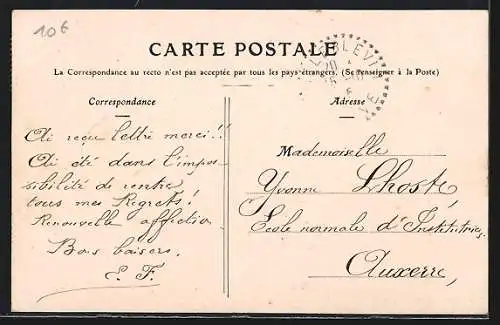 10€
CARTE POSTALE
La Correspondance au recto n'est pas acceptée par tous les pays étrangers. (Se renseigner à la Poste)
Correspondance
Ai reçu lettre merci!!
Ai été dans l'impos
sibilité de rentre
tous mes Regrets!
Renouvelle affectio
Bons baisers.
E. F.
Adresse
Mademoiselle
Yvonne Lhoste
Ecole normale d'Institutrices
Auxerre,